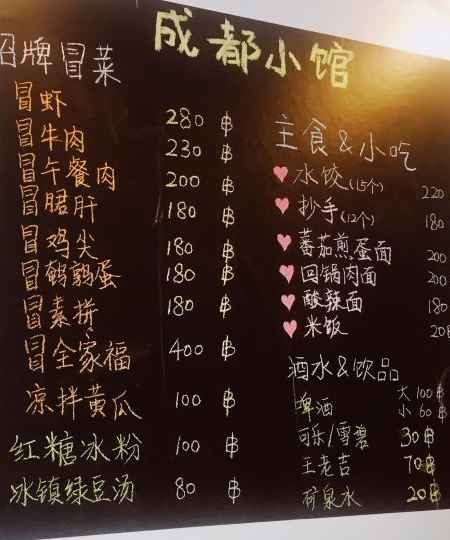 成都小馆
招牌冒菜
冒虾 280 ฿
冒牛肉 230 ฿
冒午餐肉 200 ฿
冒䐃肝 180 ฿
冒鸡尖 180 ฿
冒鹌鹑蛋 180 ฿
冒素拼 180 ฿
冒全家福 400 ฿
凉拌黄瓜 100 ฿
红糖冰粉 100 ฿
冰镇绿豆汤 80 ฿
主食&小吃
水饺(15个) 220
抄手(12个) 180
蕃茄煎蛋面 200
回锅肉面 200
酸辣面 180
米饭 20฿
酒水&饮品
啤酒 大 100฿
小 60฿
可乐/雪碧 30฿
王老吉 70฿
矿泉水 20฿